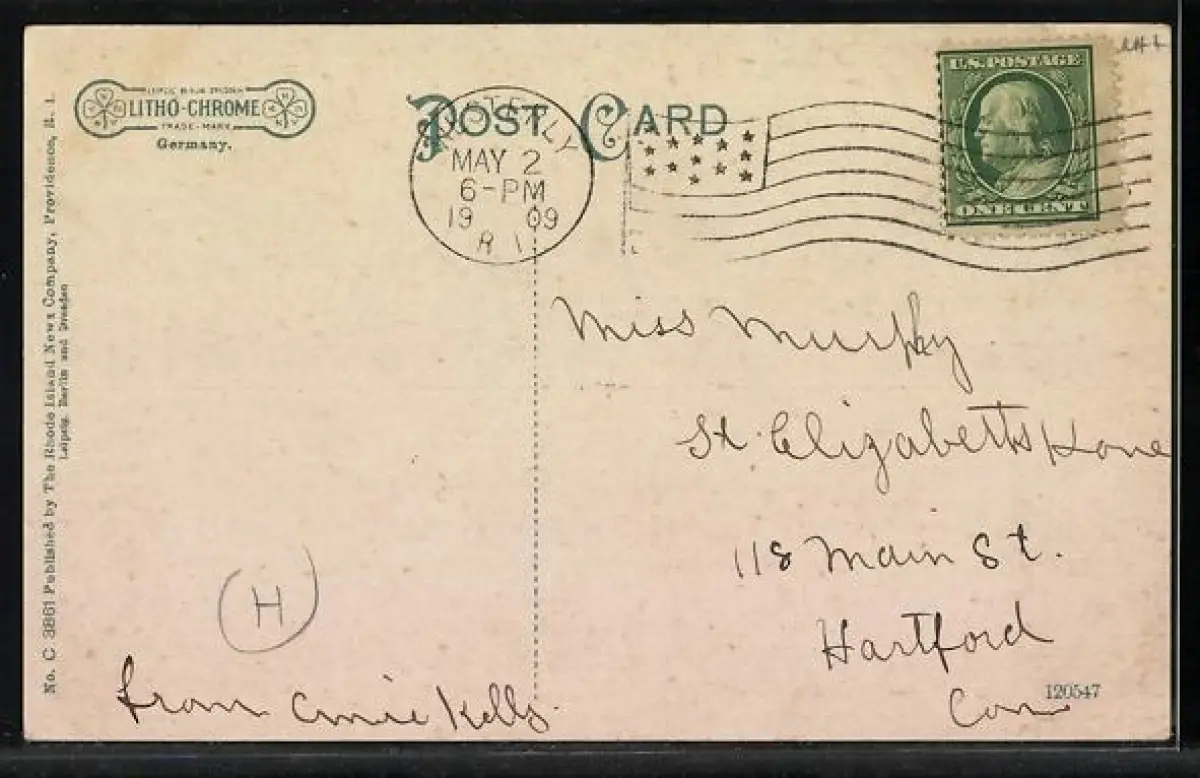 LITHO-CHROME
TRADE-MARK
Germany.
POST CARD
WESTERLY
MAY 2
6-PM
19 09
R I
U.S. POSTAGE
ONE CENT
No. C 3861 Published by The Rhode Island News Company, Providence, R. I.
Leipzig, Berlin and Dresden
Miss Murphy
St. Elizabeth's Home
118 Main St.
Hartford
Conn
120547
H
from Annie Kelly.